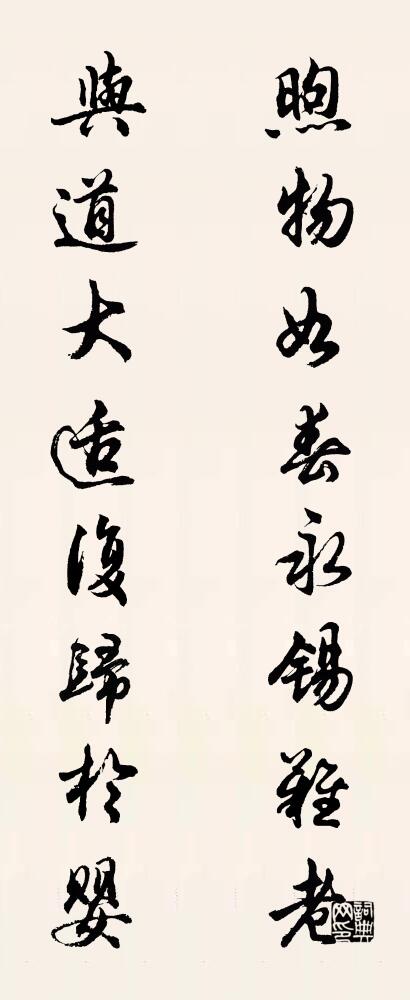 煦物如春永錫難老
與道大适復歸於嬰
詞典網印